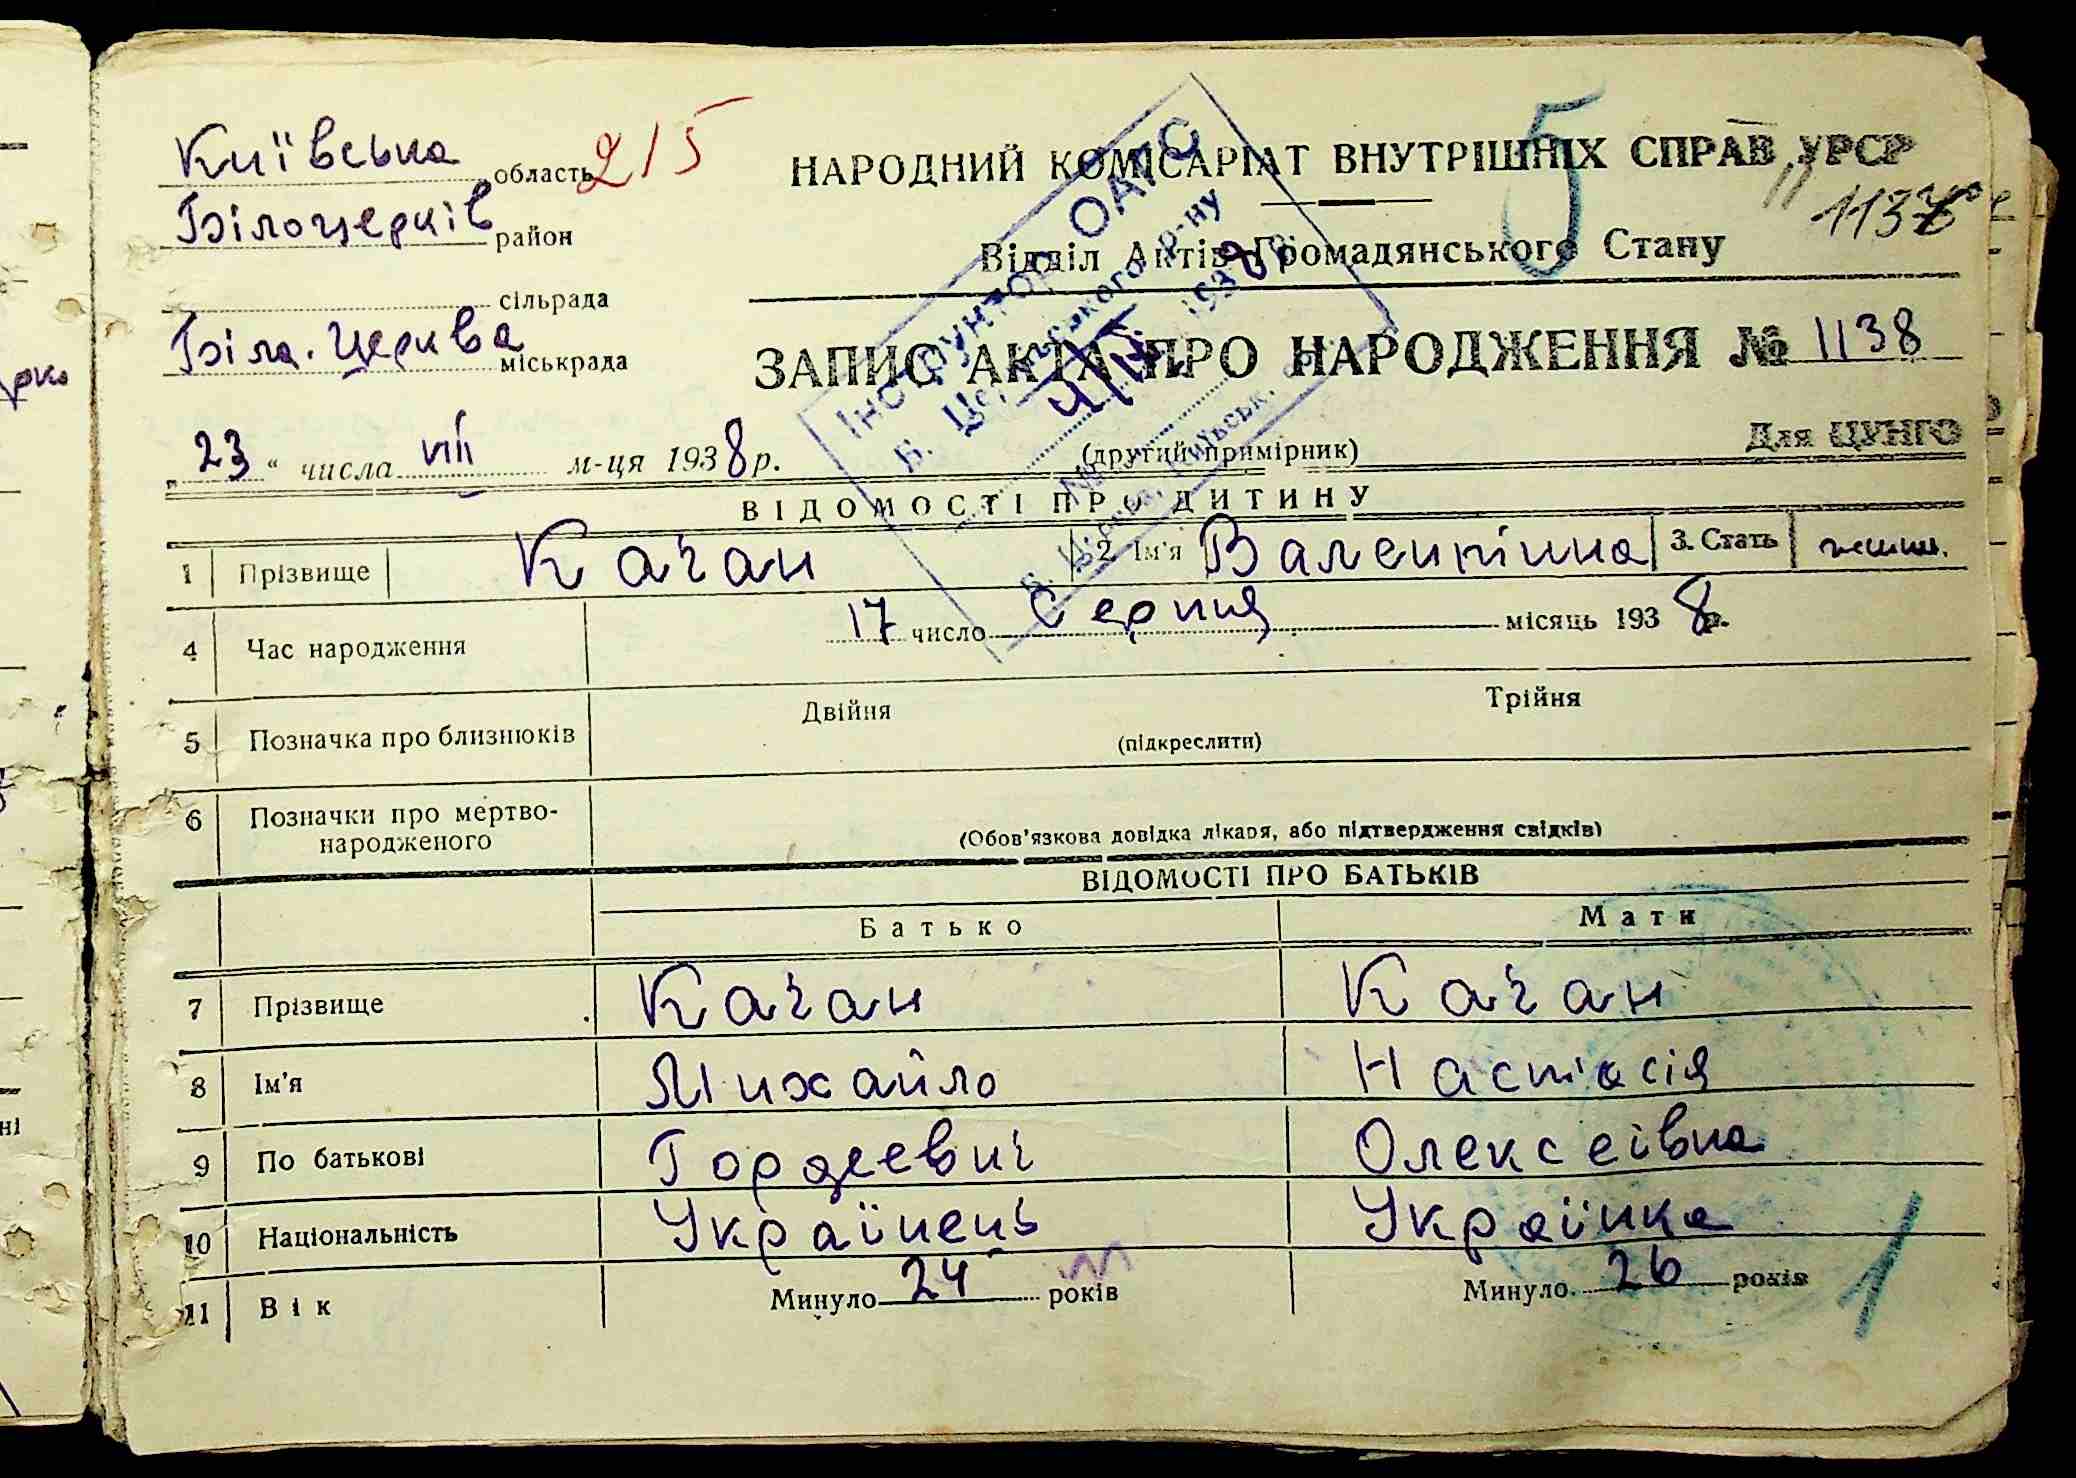 Київська область 215
Білоцерків район
сільрада
Біла. Церква міськрада
НАРОДНИЙ КОМІСАРІАТ ВНУТРІШНІХ СПРАВ УРСР
5
Відділ Актів Громадянського Стану
ЗАПИС АКТА ПРО НАРОДЖЕННЯ № 1138
23 " числа VIII м-ця 1938 р.
(другий примірник)
Для ЦУНГО
Інспектор ОАГС
ВІДОМОСТІ ПРО ДИТИНУ
1 Прізвище Качан 2. Ім'я Валентіна 3. Стать жінн.
4 Час народження 17 число Серпня місяць 1938 р.
5 Позначка про близнюків Двійня Трійня
(підкреслити)
6 Позначки про мертво-
народженого
(Обов'язкова довідка лікаря, або підтвердження свідків)
ВІДОМОСТІ ПРО БАТЬКІВ
Батько Мати
7 Прізвище Качан Качан
8 Ім'я Михайло Настасія
9 По батькові Гордеевич Олексеівна
10 Національність Українець Українка
11 Вік Минуло 24 років Минуло 26 років
1